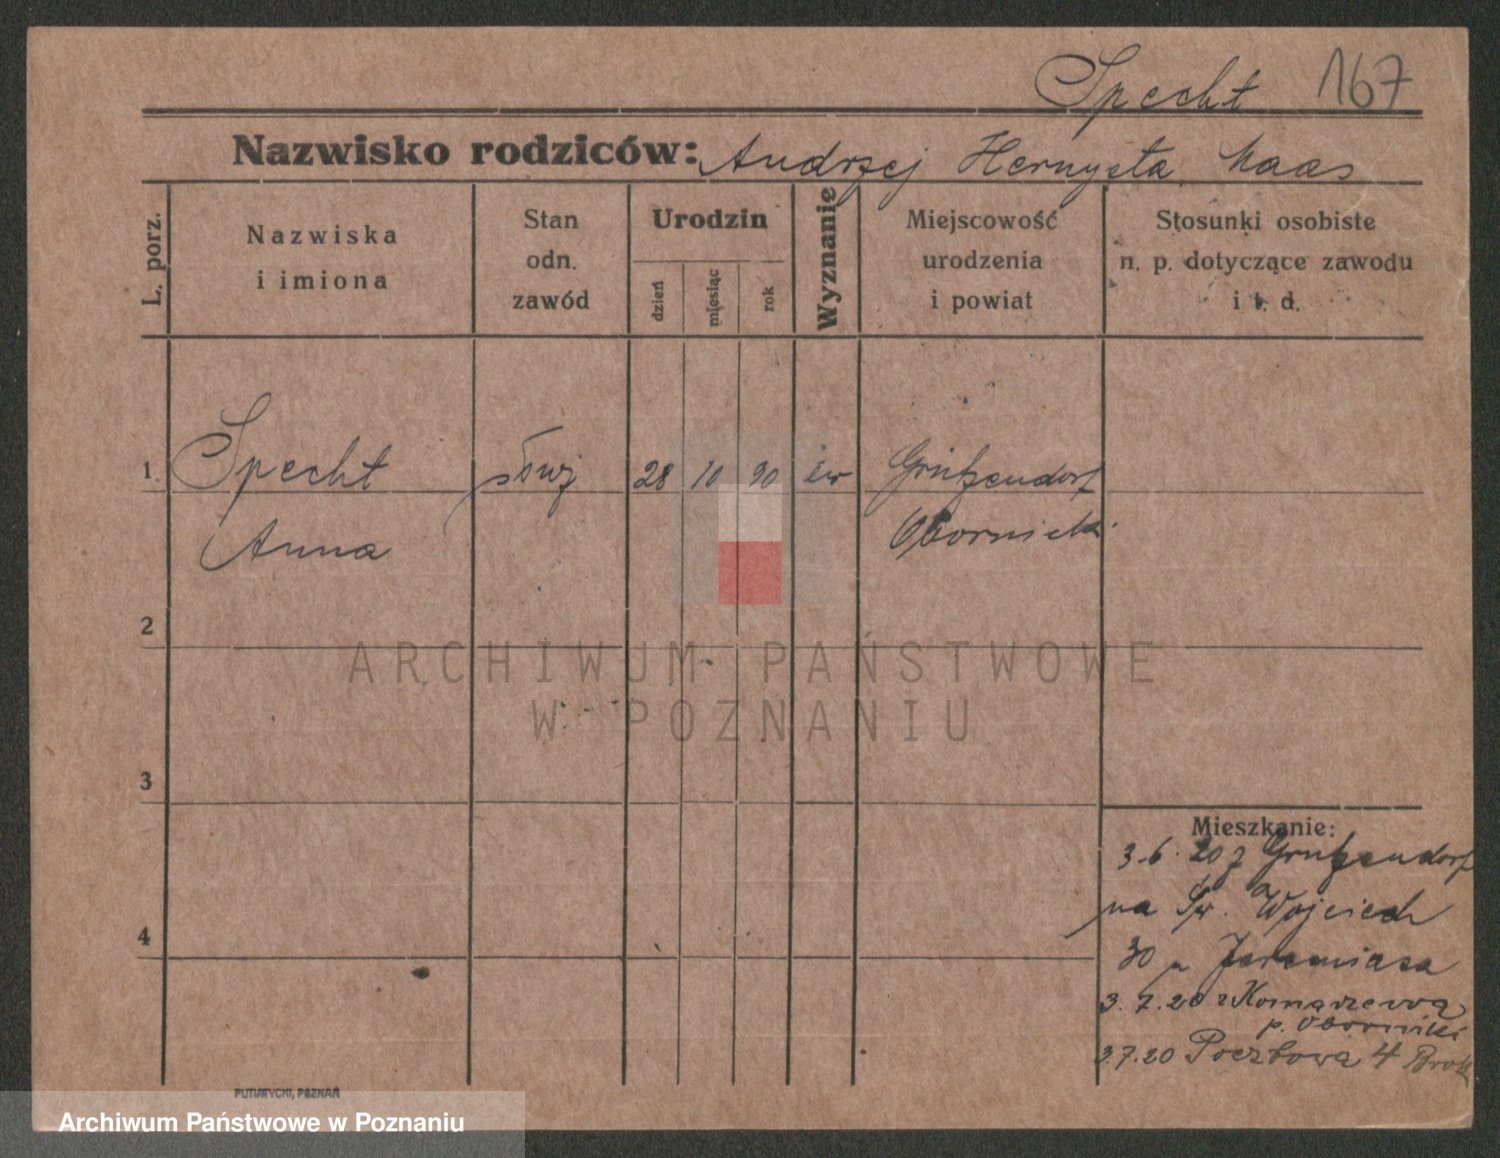 Specht 167
Nazwisko rodziców: Andrzej Maas
L. porz.
Nazwiska
i imiona
Stan
odn.
zawód
Urodzin
dzień
miesiąc
rok
Wyznanie
Miejscowość
urodzenia
i powiat
Stosunki osobiste
n. p. dotyczące zawodu
i t. d.
1 Specht służ 28 10 90 ew Grützendorf
Anna Obornicki
2
3
4
Mieszkanie:
3.6.20 z Grützendorf
na Św. Wojciech
30 Jeremiasa
3.7.20 z
p. Oborniki
3.7.20 Pocztowa 4
PUTIATYCKI, POZNAŃ
ARCHIWUM PAŃSTWOWE
W POZNANIU
Archiwum Państwowe w Poznaniu